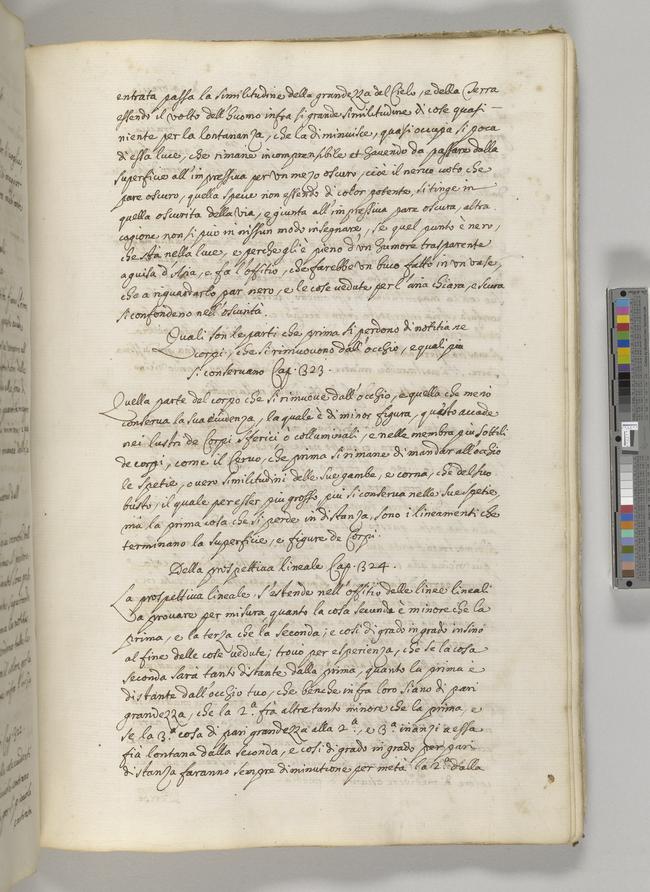 entrata passa la similitudine della grandezza del Cielo, e della Terra
essendo il volto dell'huomo infra si grande similitudine di cose quasi
niente per la lontananza, che la diminuisce, quasi occupa si poca
di essa luce, che rimane incomprensibile et havendo da passare dalla
superficie all'impressiva per un mezo oscuro, cioè il nervo voto che
pare oscuro, quella specie non essendo di color potente, si tinge in
quella oscurità della via, e giunta all'impressiva pare oscura, altra
cagione non si può in nissun modo insegnare, se quel punto è nero,
che stà nella luce, e perche gli è pieno d'un humore trasparente
a guisa d'Aria, e fa l'offitio, che farebbe un buco fatto in un vase,
che a riguardarlo par nero, e le cose vedute per l'aria chiara, e scura
si confondeno nell'oscurità.
Quali son le parti che prima si perdono di notitia ne
corpi, che si rimuovono dall'occhio, e quali più
si conservano Cap. 323.
Quella parte del corpo che si rimuove dall'occhio, è quella che meno
conserva la sua evidenza, la quale è di minor figura, questo accade
nei lustri de Corpi sferici ò colluminali, e nelle membra più sottili
de corpi, come il Cervo, che prima si rimane di mandar all'occhio
le spetie, overo similitudini delle sue gambe, e corna, che del suo
busto, il quale per esser più grosso, più si conserva nelle sue spetie,
ma la prima cosa che si perde in distanza, sono i lineamenti che
terminano la superficie, e figure de Corpi.
Della prospettiva lineale Cap. 324.
La prospettiva lineale s'estende nell'offitio delle linee lineali
Da provare per misura quanto la cosa seconda è minore che la
prima, e la terza che la seconda; e così di grado in grado insino
al fine delle cose vedute; trovo per esperienza, che se la cosa
seconda sarà tanto distante dalla prima, quanto la prima è
distante dall'occhio tuo, che benche infra loro siano di pari
grandezza, che la 2ª fia altretanto minore che la prima, e
se la 3ª cosa di pari grandezza alla 2ª, e 3ª inanzi a essa
fia lontana dalla seconda, e così di grado in grado per pari
distanza faranno sempre diminutione per metà la 2ª dalla